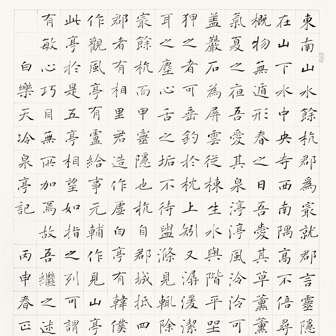 東南山水餘杭郡為冣就郡言靈隱
在山下水中央寺西南隅高不倍尋
概物無遁形春之日吾愛其草薰薰
氣夏之夜吾愛其泉渟渟風泠泠可
蓋巖石為屏雲從棟生水與階平坐
狎之者可垂釣於枕上矧又潺湲潔
耳之塵心舌之垢不待盥滌見輒除
冣餘杭而甲靈隱也杭自郡城抵四
郡者有相里君造作虛白亭有韓僕
作觀風亭有盧給事元輔作見山亭
此亭於是五亭相望如指之列可謂
有敏心巧目無所加焉故吾繼之述
白樂天冷泉亭記 丙申春正